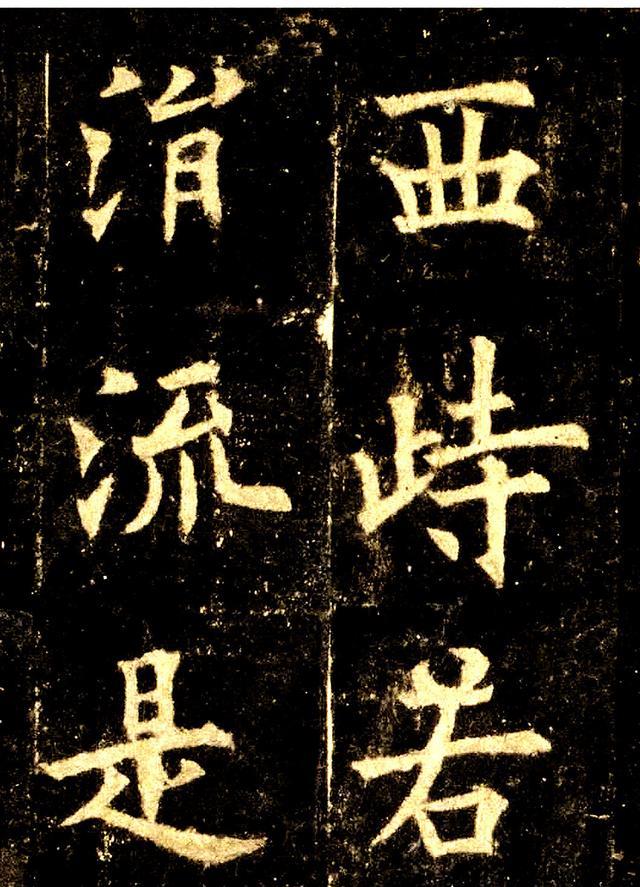 西峙若
涓流是